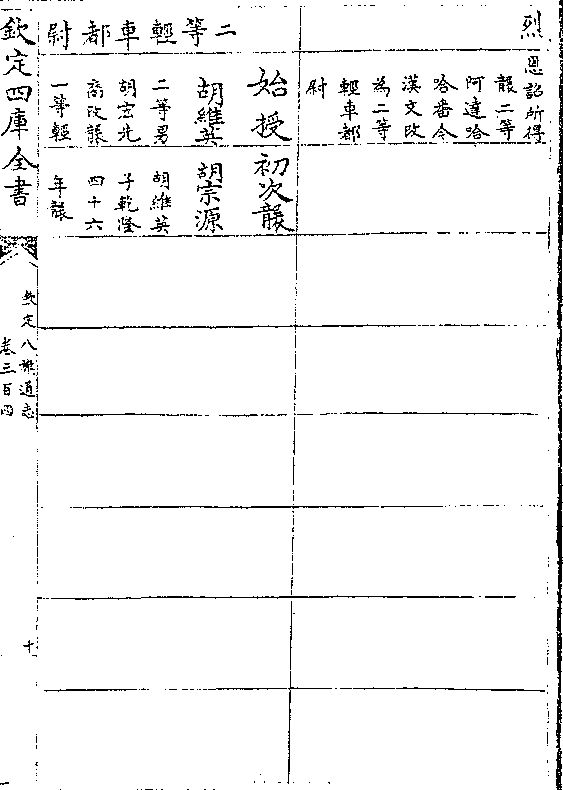 烈
恩詔所得
襲二等
阿達哈
哈番今
漢文改
為二等
輕車都
尉
二等輕車都尉
始授
胡維英
二等男
胡玄光
裔改襲
一等輕
初次襲
胡宗源
胡維英
子乾隆
四十六
年襲
欽定四庫全書
欽定八旗通志
卷三百四
十